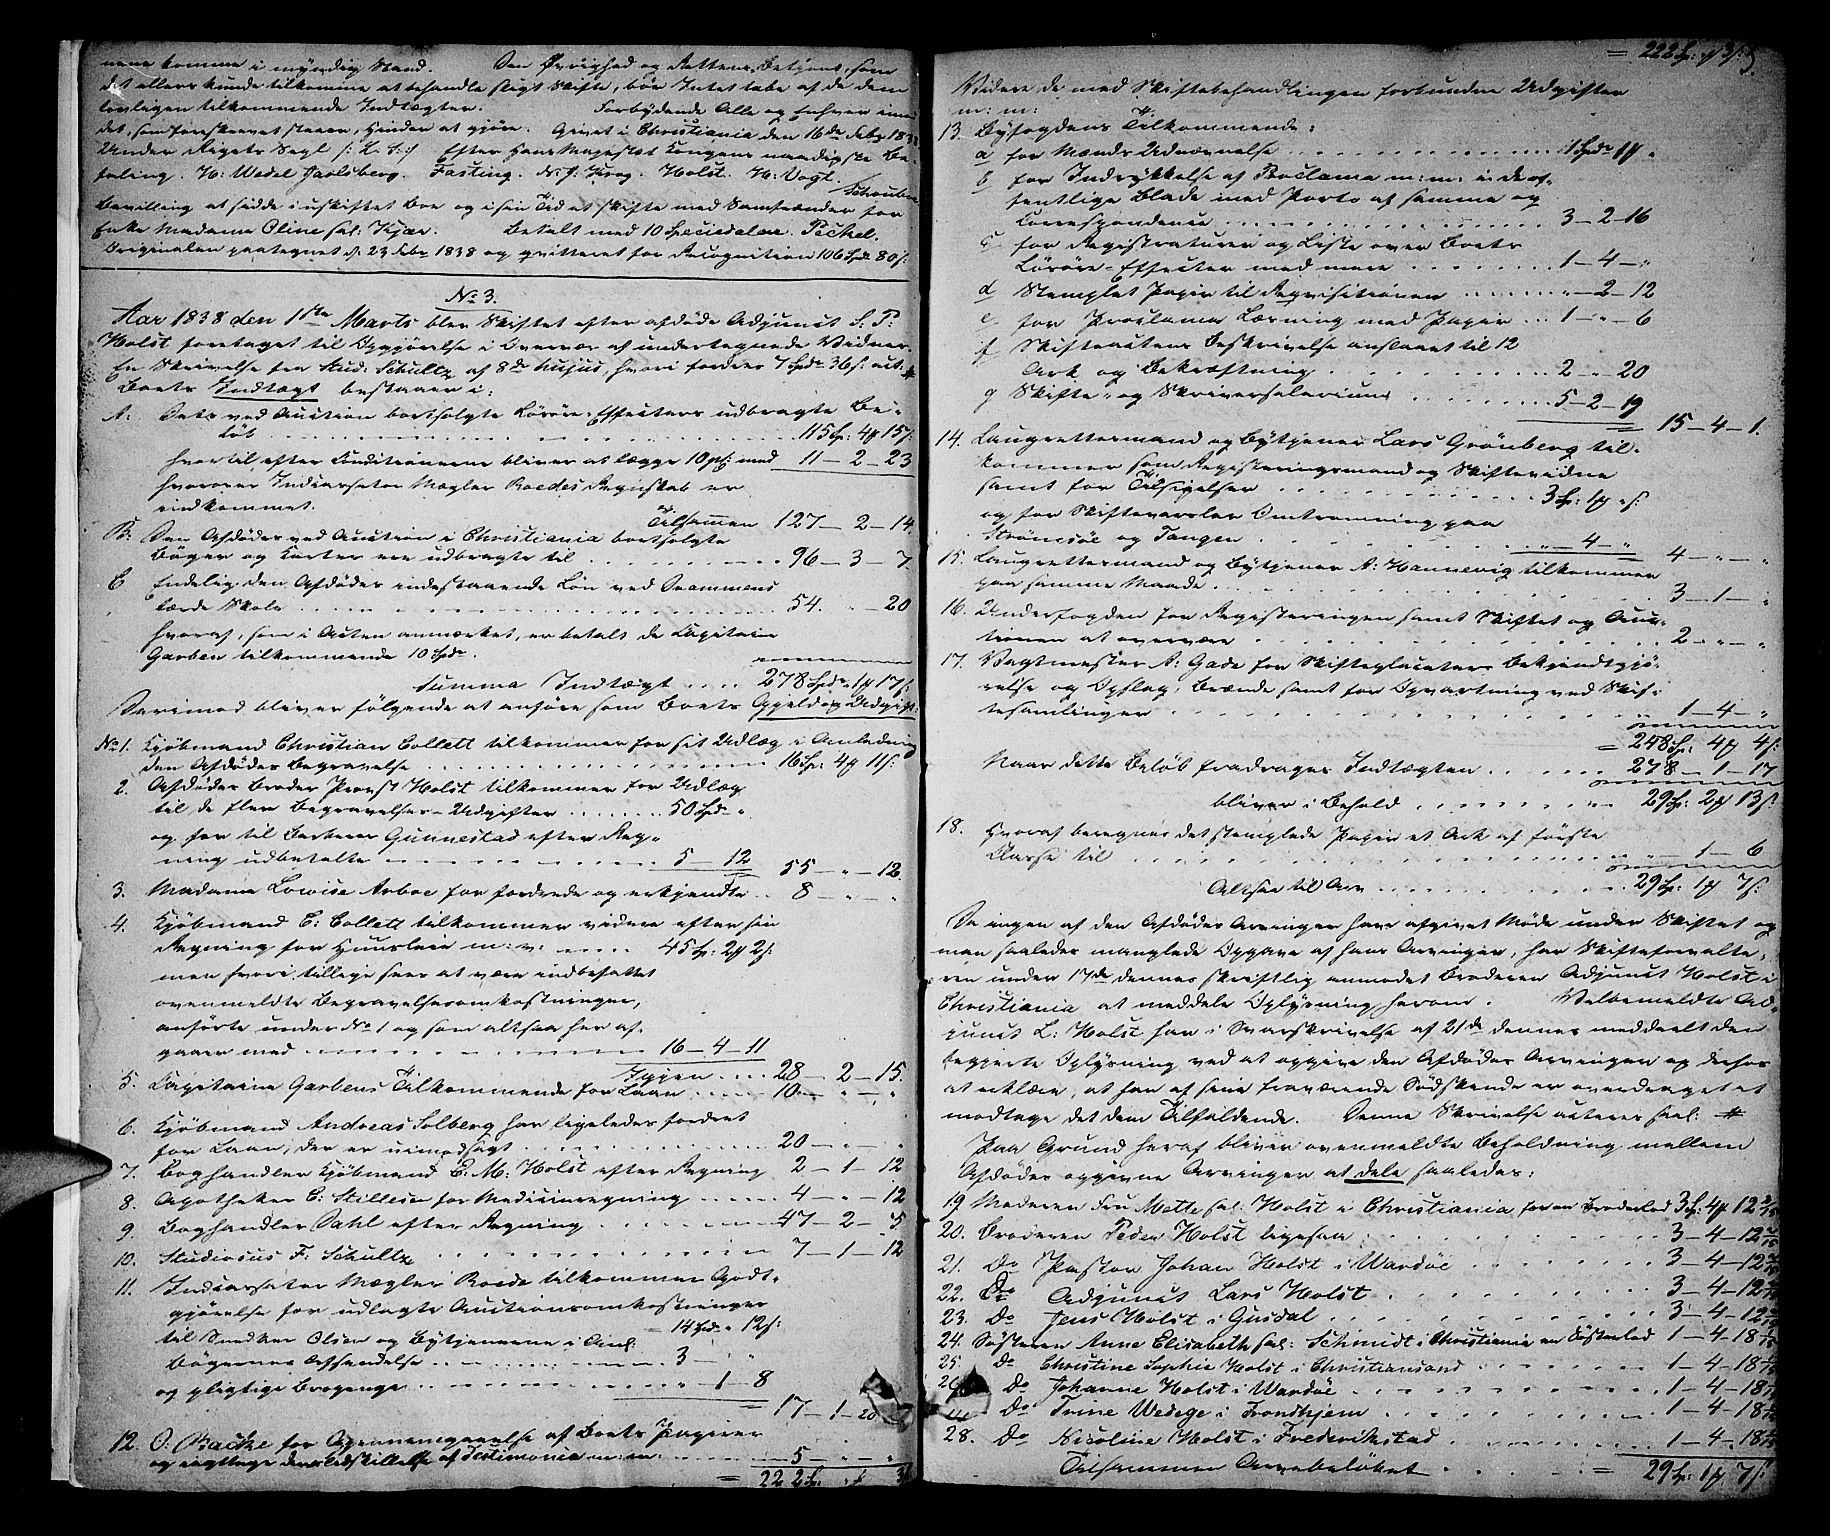 nene komme i myndig Stand. Den Øvrighed og Rettens Betjent, som
det ellers kunde tilkomme at behandle sligt Skifte, bør Intet tabe af de dem
lovligen tilkommende Indtægter. Forbydende Alle og Enhver imod
det, som foreskrevet staaer, Hinder at gjøre. Givet i Christiania den 16de Febr 1838
Under Rigets Segl /: L. S:/ Efter Hans Majestæt Kongens naadigste Be-
faling. H: Wedel Jarlsberg. Fasting. N. J. Krog. Holst. H: Vogt.
Schouboe
Bevilling at sidde i uskiftet Boe og i sin Tid at skifte med Samfrænder for
Enke Madame Oline sal: Kjær. Betalt med 10 Speciedaler. Peckel.
Originalen paategnet d. 23 Febr 1838 og qvitteret for Recognition 106 Spd 80 s:
No 3.
Aar 1838 den 1ste Marts blev Skiftet efter afdøde Adjunct S. P:
Holst foretaget til Opgjørelse i Overvær af undertegnede Vidner.
En Skrivelse fra Stud: Schultz af 8de hujus, hvori fordres 7 Spd 36 s: act: #
Boets Indtægt bestaaer i:
A: Dets ved Auction bortsolgte Løsøre-Effecters udbragte Be-
løb 115 Sp: 4 # 15 s:
hvortil efter Conditionerne bliver at lægge 10 pC: med 11 - 2 - 23
hvorover Indcassator Mægler Roedes Regnskab er
indkommet. Tilsammen 127 - 2 - 14.
B: Den Afdødes ved Auction i Christiania bortsolgte
Bøger og Karter ere udbragte til 96 - 3 - 7.
C Endelig den Afdødes indestaaende Løn ved Drammens
lærde Skole 54. " - 20
hvoraf, som i Acten anmærket, er betalt de Capitain
Garben tilkommende 10 Spd.
Summa Indtægt 278 Spd 1 # 17 s:
Derimod bliver følgende at anføre som Boets Gjeld og Udgift.
No 1. Kjøbmand Christian Collett tilkommer for sit Udlæg i Anledning
den Afdødes Begravelse 16 Sp: 4 # 11 s:
2. Afdødes Broder Provst Holst tilkommer for Udlæg
til de flere Begravelses-Udgifter 50 Spd "
og for til Barberer Gunnestad efter Reg-
ning udbetalte 5 - 12 55 - " - 12.
3. Madame Lovise Arboe for fordrede og erkjendte 8 - " - "
4. Kjøbmand C: Collett tilkommer videre efter sin
Regning for Huusleie m: v: 45 Sp: 2 # 2 s:
men hvori tillige sees at være indbefattet
ovenmeldte Begravelsesomkostninger,
anførte under No 1 og som altsaa her af-
gaaer med 16 - 4 - 11
Igjen 28 - 2 - 15.
5. Capitaine Garbens Tilkommende for Laan 10 - " - "
6. Kjøbmand Andreas Solberg har ligeledes fordret
for Laan, der er uimodsagt 20 - " - "
7. Boghandler Kjøbmand C. M: Holst efter Regning 2 - 1 - 12
8. Apotheker C: Stillesen for Medicinregning 4 - " - 12
9. Boghandler Dahl efter Regning 47 - 2 - 5
10. Studiosus F. Schultz 7 - 1 - 12
11. Indcassator Mægler Roede tilkommer Godt-
gjørelse for udlagte Auctionsomkostninger
14 Spd " 12 s:
til Snedker Olsen og Bytjenerne i Anl:
Bøgernes Afsendelse 3 - "
og pligtige Brøgenge " - 1 - 8
17 - 1 - 20
12. O: Backe for Gjennemgaaelse af Boets Papirer
og iagttagendes Udstillelse af Testimonia m: m: 5 - " - "
= 222 Sp: " # 3 s
= 222 Sp: " # 3 s:
Videre de med Skiftebehandlingen forbundne Udgifter
m: m:
13. Byfogdens Tilkommende:
a for Mænds Udnævnelse 1 Spd 1 # "
b for Indrykkelse af Proclama m: m: i de of-
fentlige Blade med Porto af samme og
Correspondence 3 - 2 - 16
c for Registraturen og Liste over Boets
Løsøre-Effecter med mere 1 - 4 - "
d Stemplet Papir til Reqvisitionen " - 2 - 12
e for Proclama Læsning med Papir 1 - " - 6
f Skifteactens Beskrivelse anslaaet til 12
Ark og Bekræftning 2 - " - 20
g Skifte- og Skriversalarium 5 - 2 - 19
15 - 4 - 1.
14. Laugrettesmand og Bytjener Lars Grönberg til-
kommer som Registreringsmand og Skiftevidne
samt for Tilsigelser 3 Sp: 1 # " s:
og for Skiftevarsler Omtromning paa
Strømsøe og Tangen " - 4 - " 4 - " - "
15. Laugrettesmand og Bytjener A: Hannevig tilkommer
paa samme Maade 3 - 1 - "
16. Underfogden for Registreringen samt Skiftet og Auc-
tionen at overvære 2 - " - "
17. Vagtmester A: Gade for Skifteplacaters Bekjendtgjø-
relse og Opslag, Brænde samt for Opvartning ved Skif-
tesamlinger 1 - 4 - "
= 248 Sp: 4 # 4 s:
Naar dette Beløb fradrages Indtægten 278 - 1 - 17
bliver i Behold 29 Sp: 2 # 13 s:
18. Hvoraf beregnes det stemplede Papir et Ark af første
Classe til " - 1 - 6
Altsaa til Arv 29 Sp: 1 # 7 s:
Da ingen af den Afdødes Arvinger have afgivet Møde under Skiftet og
man saaledes manglede Opgave af hans Arvinger, har Skifteforvalte-
ren under 17de dennes skriftlig anmodet Broderen Adjunct Holst i
Christiania at meddele Oplysning herom. Velbemeldte Ad-
junct L: Holst har i Svarskrivelse af 21de dennes meddeelt den
begjerte Oplysning ved at opgive den Afdødes Arvinger og derhos
at erklære, at han af sine fraværende Sødskende er overdraget at
modtage det dem Tilfaldende. Denne Skrivelse acteres saal: #
Paa Grund heraf bliver ovenmeldte Beholdning mellem
Afdødes opgivne Arvinger at dele saaledes:
19. Moderen Fru Mette sal. Holst i Christiania for en Broderlod 3 Sp: 4 # 12 2/15
20. Broderen Peder Holst ligesaa 3 - 4 - 12 2/15
21. Do Pastor Johan Holst i Wardöe 3 - 4 - 12 2/15
22. Do Adjunct Lars Holst 3 - 4 - 12 2/15
23. Do Jens Holst i Gusdal 3 - 4 - 12 2/15
24. Søsteren Anne Elisabeth sal: Schmidt i Christiania en Søsterlod 1 - 4 - 18 1/15
25. Do Christine Sophie Holst i Christiansand 1 - 4 - 18 1/15
26. Do Johanne Holst i Wardöe 1 - 4 - 18 1/15
Do Trine Wedege i Trondhjem 1 - 4 - 18 1/15
28. Do Nicoline Holst i Frederikstad 1 - 4 - 18 1/15
Tilsammen Arvebeløbet 29 Sp: 1 # 7 s: